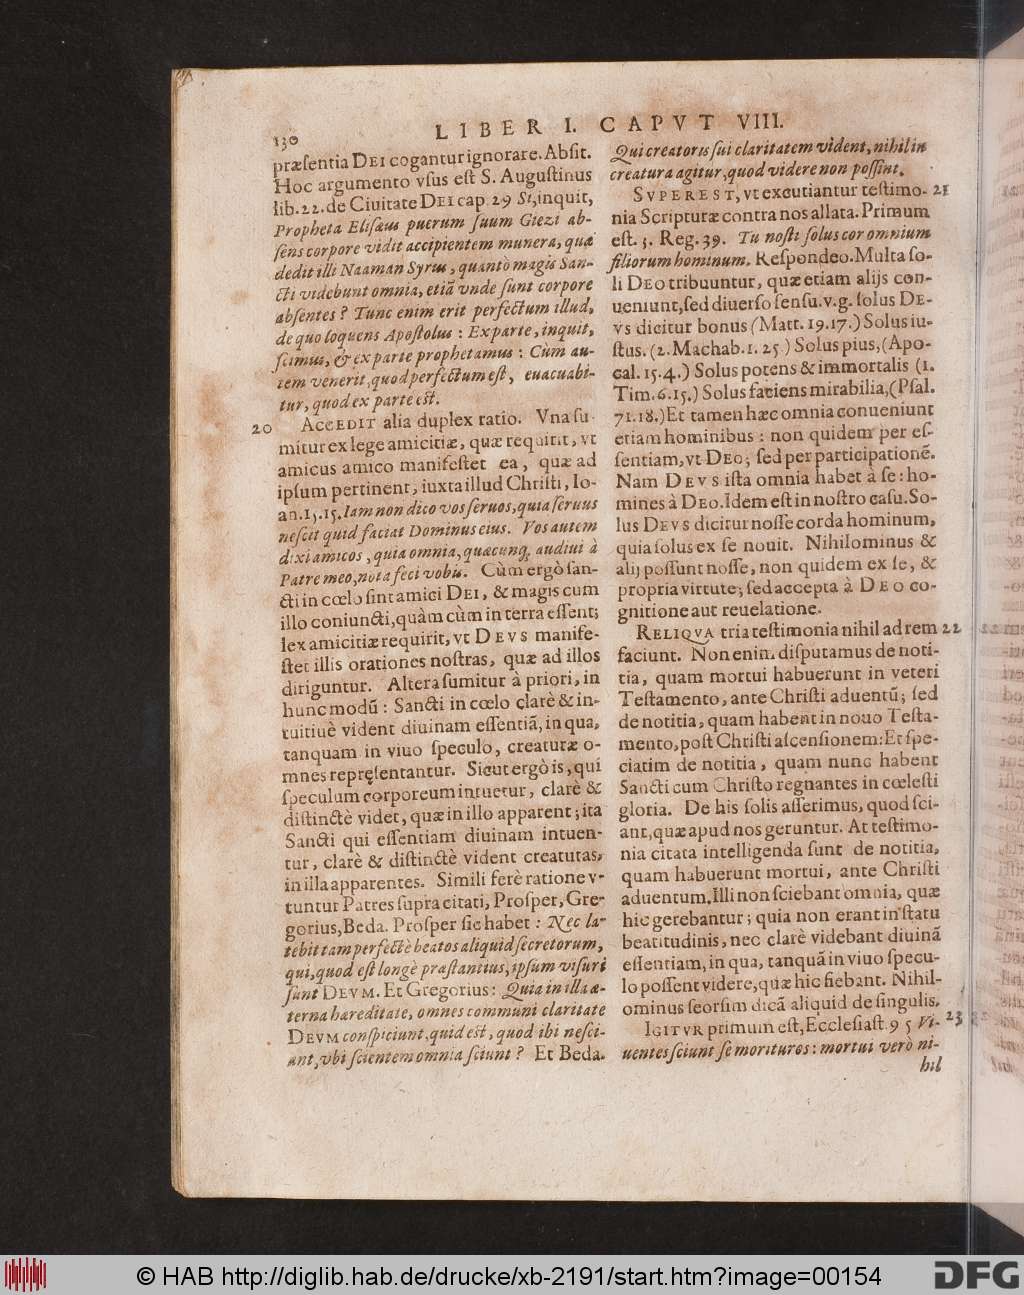 130
LIBER I. CAPVT VIII.
præſentia DEI cogantur ignorare. Abſit.
Hoc argumento vſus eſt S. Auguſtinus
lib. 22. de Ciuitate DEI cap 29 Si, inquit,
Propheta Eliſæus puerum ſuum Giezi ab-
ſens corpore vidit accipientem munera, quæ
dedit illi Naaman Syrus, quantò magis San-
cti videbunt omnia, etiã vnde ſunt corpore
abſentes? Tunc enim erit perfectum illud,
de quo loquens Apoſtolus: Ex parte, inquit,
ſcimus, & ex parte prophetamus: Cùm au-
tem venerit, quod perfectum eſt, euacuabi-
tur, quod ex parte est.
20 ACCEDIT alia duplex ratio. Vna ſu-
mitur ex lege amicitiæ, quæ requirit, vt
amicus amico manifeſtet ea, quæ ad
ipſum pertinent, iuxta illud Chriſti, Io-
an. 15. 15. Iam non dico vos ſeruos, quia ſeruus
neſcit quid faciat Dominus eius. Vos autem
dixi amicos, quia omnia, quæcunq; audiui à
Patre meo, nota feci vobis. Cùm ergò ſan-
cti in cœlo ſint amici DEI, & magis cum
illo coniuncti, quàm cùm in terra eſſent;
lex amicitiæ requirit, vt DEVS manife-
ſtet illis orationes noſtras, quæ ad illos
diriguntur. Altera ſumitur à priori, in
hunc modũ: Sancti in cœlo clarè & in-
tuitiuè vident diuinam eſſentiã, in qua,
tanquam in viuo ſpeculo, creaturæ o-
mnes repręſentantur. Sicut ergò is, qui
ſpeculum corporeum intuetur, clarè &
diſtinctè videt, quæ in illo apparent; ita
Sancti qui eſſentiam diuinam intuen-
tur, clarè & diſtinctè vident creaturas,
in illa apparentes. Simili ferè ratione v-
tuntur Patres ſupra citati, Proſper, Gre-
gorius, Beda. Proſper ſic habet: Nec la-
tebit tam perfectè beatos aliquid ſecretorum,
qui, quod eſt longè præſtantius, ipſum viſuri
ſunt DEVM. Et Gregorius: Quia in illa æ-
terna hæreditate, omnes communi claritate
DEVM conſpiciunt, quid est, quod ibi neſci-
ant, vbi ſcientem omnia ſciunt? Et Beda.
Qui creatoris ſui claritatem vident, nihil in
creatura agitur, quod videre non poſſint.
SVPEREST, vt excutiantur teſtimo- 21
nia Scripturæ contra nos allata. Primum
eſt. 3. Reg. 39. Tu noſti ſolus cor omnium
filiorum hominum. Reſpondeo. Multa ſo-
li DEO tribuuntur, quæ etiam alijs con-
ueniunt, ſed diuerſo ſenſu. v.g. ſolus DE-
VS dicitur bonus (Matt. 19. 17.) Solus iu-
ſtus. (2. Machab. 1. 25.) Solus pius, (Apo-
cal. 15. 4.) Solus potens & immortalis (1.
Tim. 6. 15.) Solus faciens mirabilia, (Pſal.
71. 18.) Et tamen hæc omnia conueniunt
etiam hominibus: non quidem per eſ-
ſentiam, vt DEO; ſed per participationẽ.
Nam DEVS iſta omnia habet à ſe: ho-
mines à DEO. Idem eſt in noſtro caſu. So-
lus DEVS dicitur noſſe corda hominum,
quia ſolus ex ſe nouit. Nihilominus &
alij poſſunt noſſe, non quidem ex ſe, &
propria virtute; ſed accepta à DEO co-
gnitione aut reuelatione.
RELIQVA tria teſtimonia nihil ad rem 22
faciunt. Non enim diſputamus de noti-
tia, quam mortui habuerunt in veteri
Teſtamento, ante Chriſti aduentũ; ſed
de notitia, quam habent in nouo Teſta-
mento, poſt Chriſti aſcenſionem: Et ſpe-
ciatim de notitia, quam nunc habent
Sancti cum Chriſto regnantes in cœleſti
gloria. De his ſolis aſſerimus, quod ſci-
ant, quæ apud nos geruntur. At teſtimo-
nia citata intelligenda ſunt de notitia,
quam habuerunt mortui, ante Chriſti
aduentum. Illi non ſciebant omnia, quæ
hic gerebantur; quia non erant in ſtatu
beatitudinis, nec clarè videbant diuinã
eſſentiam, in qua, tanquã in viuo ſpecu-
lo poſſent videre, quæ hic fiebant. Nihil-
ominus ſeorſim dicã aliquid de ſingulis.
IGITVR primum eſt, Eccleſiaſt. 9 5 Vi- 23
uentes ſciunt ſe morituros: mortui verò ni-
hil
© HAB http://diglib.hab.de/drucke/xb-2191/start.htm?image=00154
DFG